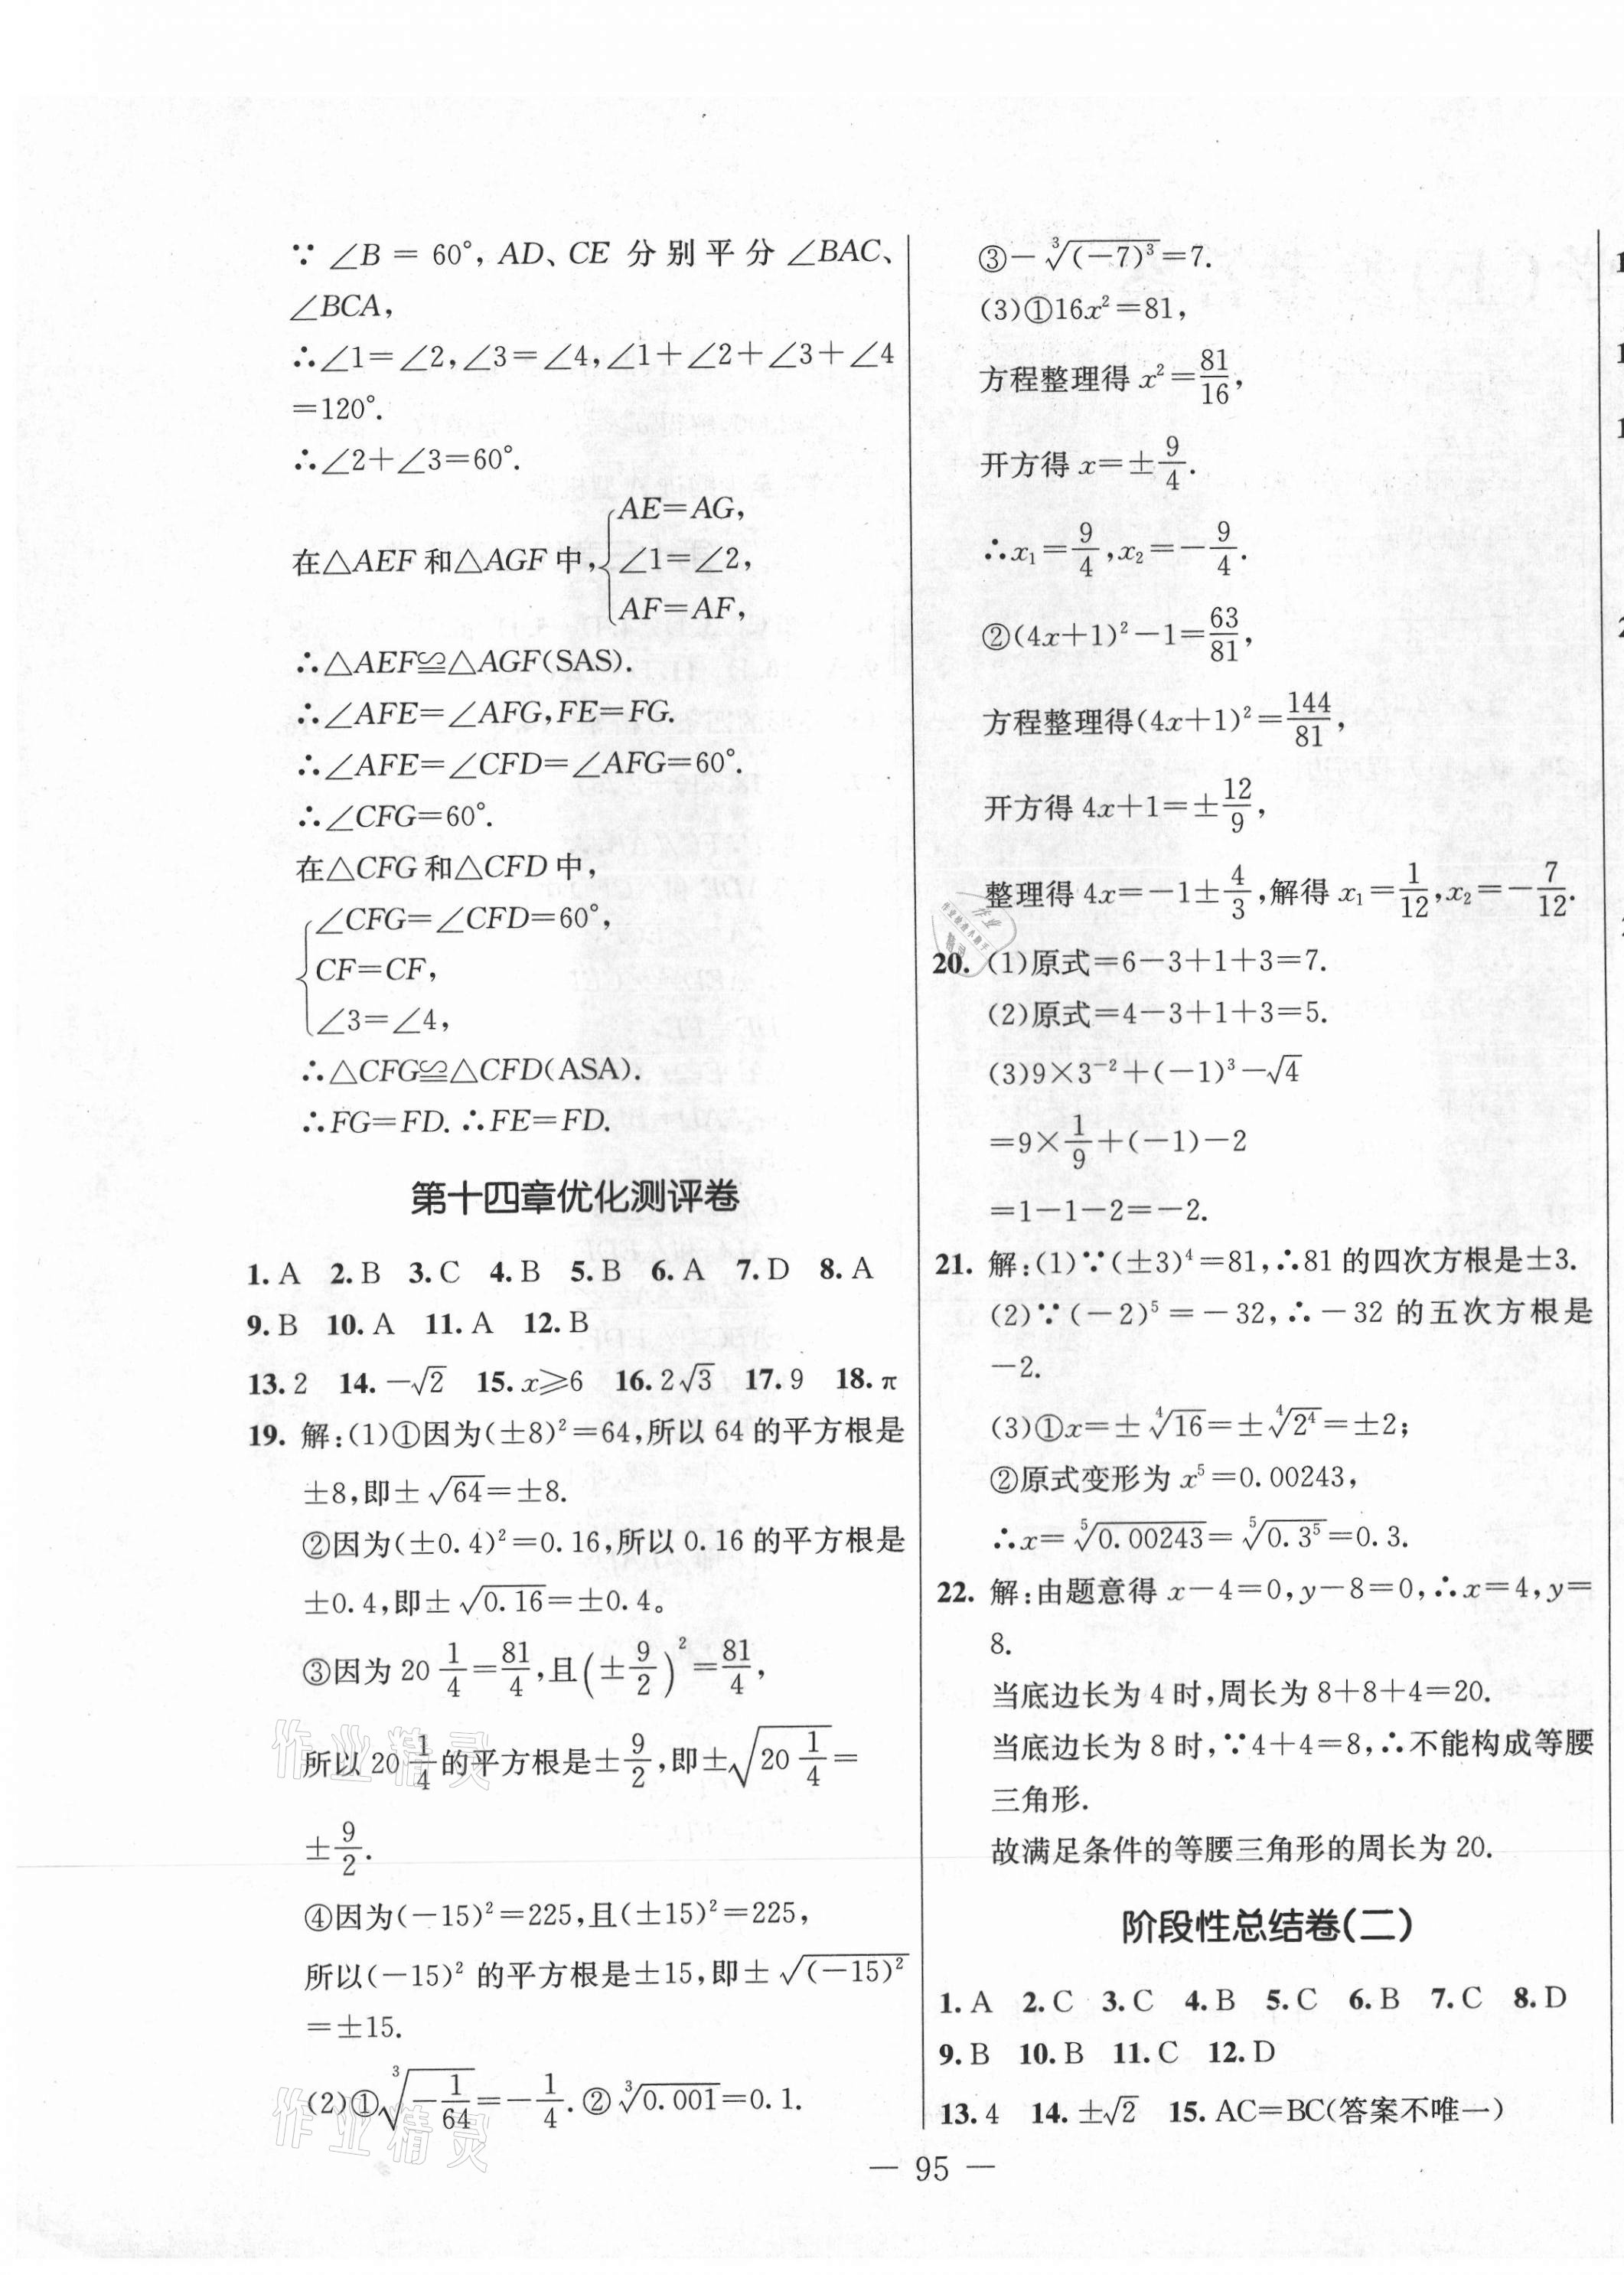 ∵ ∠B = 60°, AD、CE 分别平分 ∠BAC、
∠BCA,
∴∠1=∠2,∠3=∠4,∠1+∠2+∠3+∠4
=120°.
∴∠2+∠3=60°.
在△AEF 和△AGF 中,{AE=AG,
∠1=∠2,
AF=AF,
∴△AEF≌△AGF(SAS).
∴∠AFE=∠AFG,FE=FG.
∴∠AFE=∠CFD=∠AFG=60°.
∴∠CFG=60°.
在△CFG 和△CFD 中,
{∠CFG=∠CFD=60°,
CF=CF,
∠3=∠4,
∴△CFG≌△CFD(ASA).
∴FG=FD. ∴FE=FD.
第十四章优化测评卷
1. A 2. B 3. C 4. B 5. B 6. A 7. D 8. A
9. B 10. A 11. A 12. B
13. 2 14. −√2 15. x≥6 16. 2√3 17. 9 18. π
19. 解:(1)①因为(±8)²=64,所以 64 的平方根是
±8,即±√64=±8.
②因为(±0.4)²=0.16,所以 0.16 的平方根是
±0.4,即±√0.16=±0.4。
③因为 20 1/4=81/4,且(±9/2)²=81/4,
所以 20 1/4 的平方根是±9/2,即±√(20 1/4)=
±9/2.
④因为(−15)²=225,且(±15)²=225,
所以(−15)² 的平方根是±15,即±√(−15)²
=±15.
(2)①∛(−1/64)=−1/4. ②∛0.001=0.1.
③−∛(−7)³=7.
(3)①16x²=81,
方程整理得 x²=81/16,
开方得 x=±9/4.
∴x₁=9/4,x₂=−9/4.
②(4x+1)²−1=63/81,
方程整理得(4x+1)²=144/81,
开方得 4x+1=±12/9,
整理得 4x=−1±4/3,解得 x₁=1/12,x₂=−7/12.
20. (1)原式=6−3+1+3=7.
(2)原式=4−3+1+3=5.
(3)9×3⁻²+(−1)³−√4
=9×1/9+(−1)−2
=1−1−2=−2.
21. 解:(1)∵(±3)⁴=81,∴81 的四次方根是±3.
(2)∵(−2)⁵=−32,∴−32 的五次方根是
−2.
(3)①x=±⁴√16=±⁴√2⁴=±2;
②原式变形为 x⁵=0.00243,
∴x=⁵√0.00243=⁵√0.3⁵=0.3.
22. 解:由题意得 x−4=0,y−8=0,∴x=4,y=
8.
当底边长为 4 时,周长为 8+8+4=20.
当底边长为 8 时,∵4+4=8,∴不能构成等腰
三角形.
故满足条件的等腰三角形的周长为 20.
阶段性总结卷(二)
1. A 2. C 3. C 4. B 5. C 6. B 7. C 8. D
9. B 10. B 11. C 12. D
13. 4 14. ±√2 15. AC=BC(答案不唯一)
— 95 —
作业精灵
作业精灵